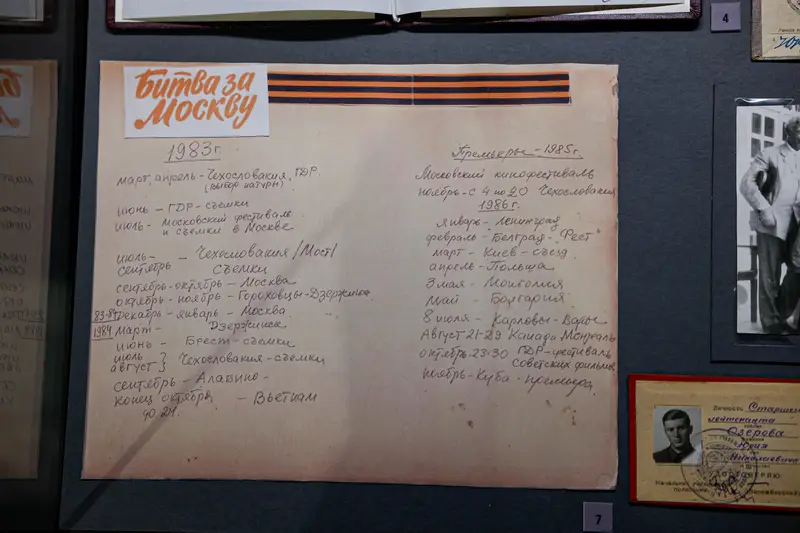 4
Битва за
Москву
1983г.
март, апрель - Чехословакия, ГДР
(выбор натуры)
июнь - ГДР - съемки
июль - Московский фестиваль
и съемки в Москве
июль - - Чехословакия /Мост/
сентябрь съемки
сентябрь - октябрь - Москва
октябрь - ноябрь - Гороховцы - Дзержинск
83-84 декабрь - январь - Москва
1984 март - Дзержинск
июнь - Брест - съемки
июль } Чехословакия - съемки
август }
сентябрь - Алабино -
конец октября - Вьетнам
до 24.
Премьеры - 1985г.
Московский кинофестиваль
ноябрь - с 4 по 20 Чехословакия
1986г.
январь - Ленинград
февраль - Белград - "Фест"
март - Киев - съезд
апрель - Польша
3 мая - Монголия
май - Болгария
8 июля - Карловы-Вары
Август 21-29 Канада Монреаль
октябрь 23-30 ГДР - фестиваль
Советских фильмов
ноябрь - Куба - премьера
7
Личность Старшего
лейтенанта
Озерова
Юрия
Николаевича
удостоверяю